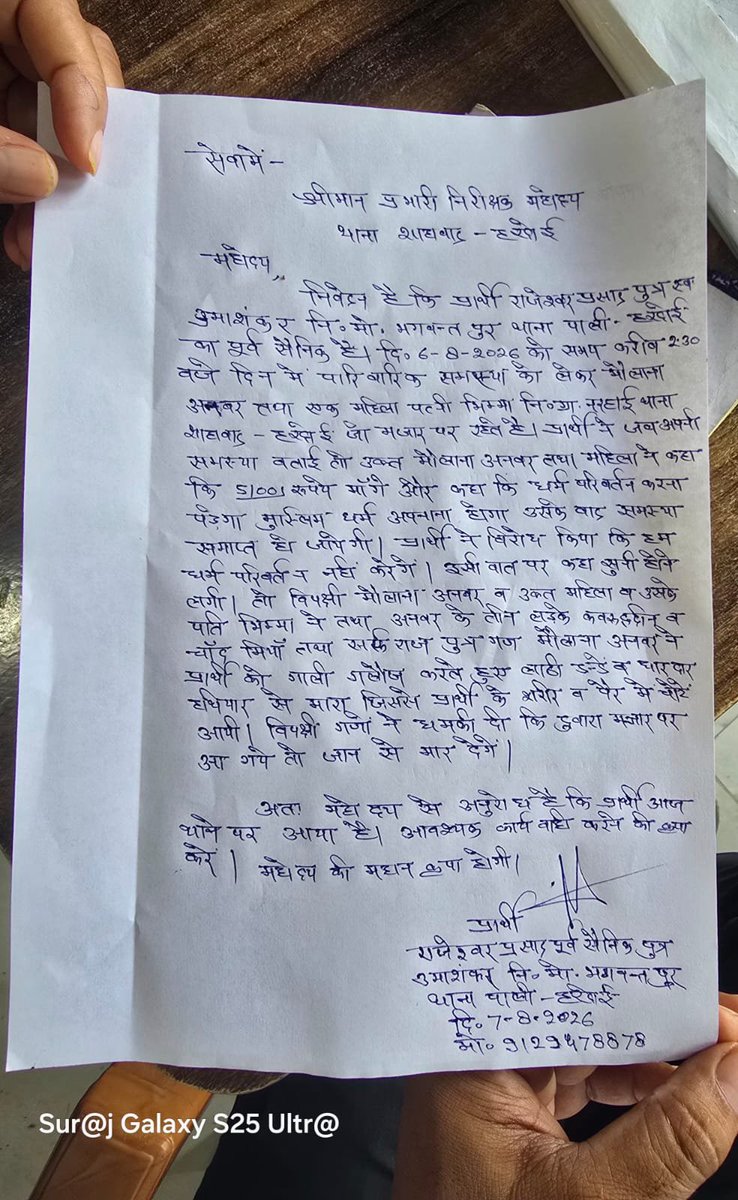 सेवामें-
श्रीमान प्रभारी निरीक्षक महोदय
थाना शाहबाद - हरदोई
महोदय,
निवेदन है कि प्रार्थी राजेश्वर प्रसाद पुत्र स्व
उमाशंकर नि० मो० भगवन्त पुर थाना पाली - हरदोई
का पूर्व सैनिक है। दि० 6-8-2026 को समय करीब 2:30
बजे दिन में पारिवारिक समस्या को लेकर मौलाना
अनवर तथा एक महिला पत्नी भिम्मा नि०ग्रा० थाना
शाहबाद - हरदोई जो मजार पर रहते है। प्रार्थी ने जब अपनी
समस्या बताई तो उक्त मौलाना अनवर तथा महिला ने कहा
कि 5100 रूपये माँगे और कहा कि धर्म परिवर्तन करना
पडेगा मुस्लिम धर्म अपनाना होगा उसके बाद समस्या
समाप्त हो जायेगी। प्रार्थी ने विरोध किया कि हम
धर्म परिवर्तन नहीं करेंगे। इसी बात पर कहा सुनी होने
लगी। तो विपक्षी मौलाना अनवर व उक्त महिला व उसके
पति भिम्मा ने तथा अनवर के तीन लड़के व
चाँद मियाँ तथा पुत्र गण मौलाना अनवर ने
प्रार्थी को गाली गलौज करते हुए लाठी डन्डे व धारदार
हथियार से मारा जिससे प्रार्थी के शरीर व पैर में चोटें
आयी। विपक्षी गणों ने धमकी दी कि दुबारा मजार पर
आ गये तो जान से मार देगें।
अतः महोदय से अनुरोध है कि प्रार्थी आज
थाने पर आया है। आवश्यक कार्यवाही करने की कृपा
करें। महोदय की महान कृपा होगी।
प्रार्थी
राजेश्वर प्रसाद पूर्व सैनिक पुत्र
उमाशंकर नि० मो० भगवन्त पुर
थाना पाली - हरदोई
दि० 7-8-2026
मो० 9129478878
Sur@j Galaxy S25 Ultr@